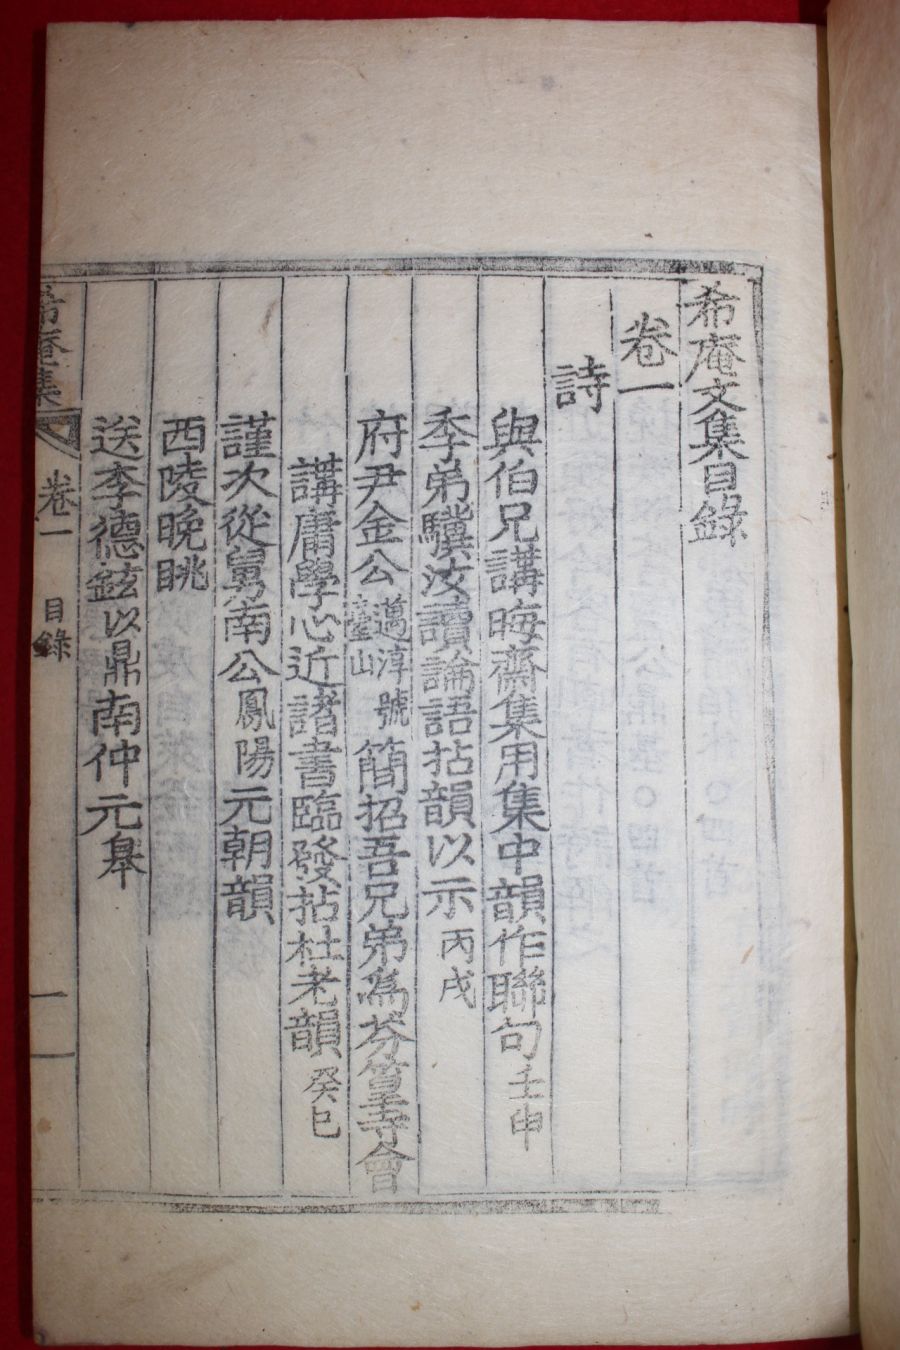 希庵文集目錄
卷一
詩
與伯兄講晦齋集用集中韻作聯句壬申
季弟驥汝讀論語拈韻以示丙戌
府尹金公邁淳號臺山簡招吾兄弟爲芬篁寺會
講庸學心近諸書臨發拈杜老韻癸巳
謹次從舅南公鳳陽元朝韻
西陵晩眺
送李德鉉以鼎南仲元皋
希庵集 卷一 目錄 一